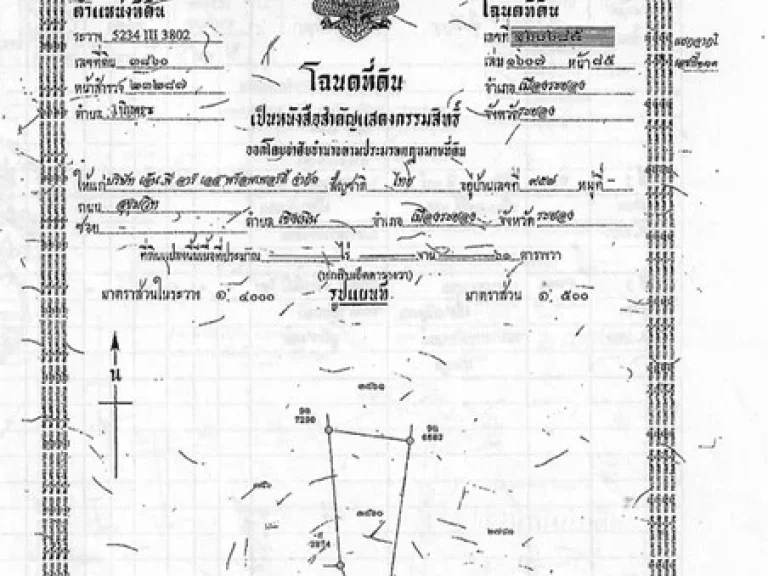 ตำแหน่งที่ดิน
ระวาง 5234 III 3802
เลขที่ดิน ๓๘๖๐
หน้าสำรวจ ๒๓๒๘๗
ตำบล
โฉนดที่ดิน
เลขที่
เล่ม ๑๖๐๗ หน้า ๘๕
อำเภอ เมืองระยอง
จังหวัด ระยอง
โฉนดที่ดิน
เป็นหนังสือสำคัญแสดงกรรมสิทธิ์
ออกโดยอาศัยอำนาจตามประมวลกฎหมายที่ดิน
ให้แก่ บริษัท เอ็น.พี อาร์ เอส พร็อพเพอร์ตี้ จำกัด สัญชาติ ไทย อยู่บ้านเลขที่ หมู่ที่ -
ถนน สุขุมวิท
ซอย ตำบล เชิงเนิน อำเภอ เมืองระยอง จังหวัด ระยอง
ที่ดินแปลงนี้มีเนื้อที่ประมาณ ไร่ งาน ๖๑ ตารางวา
(หกสิบเอ็ดตารางวา)
มาตราส่วนในระวาง ๑: ๔๐๐๐ รูปแผนที่ มาตราส่วน ๑: ๕๐๐
น
๓๘๖๑
7290
๓๘๖๐
2874